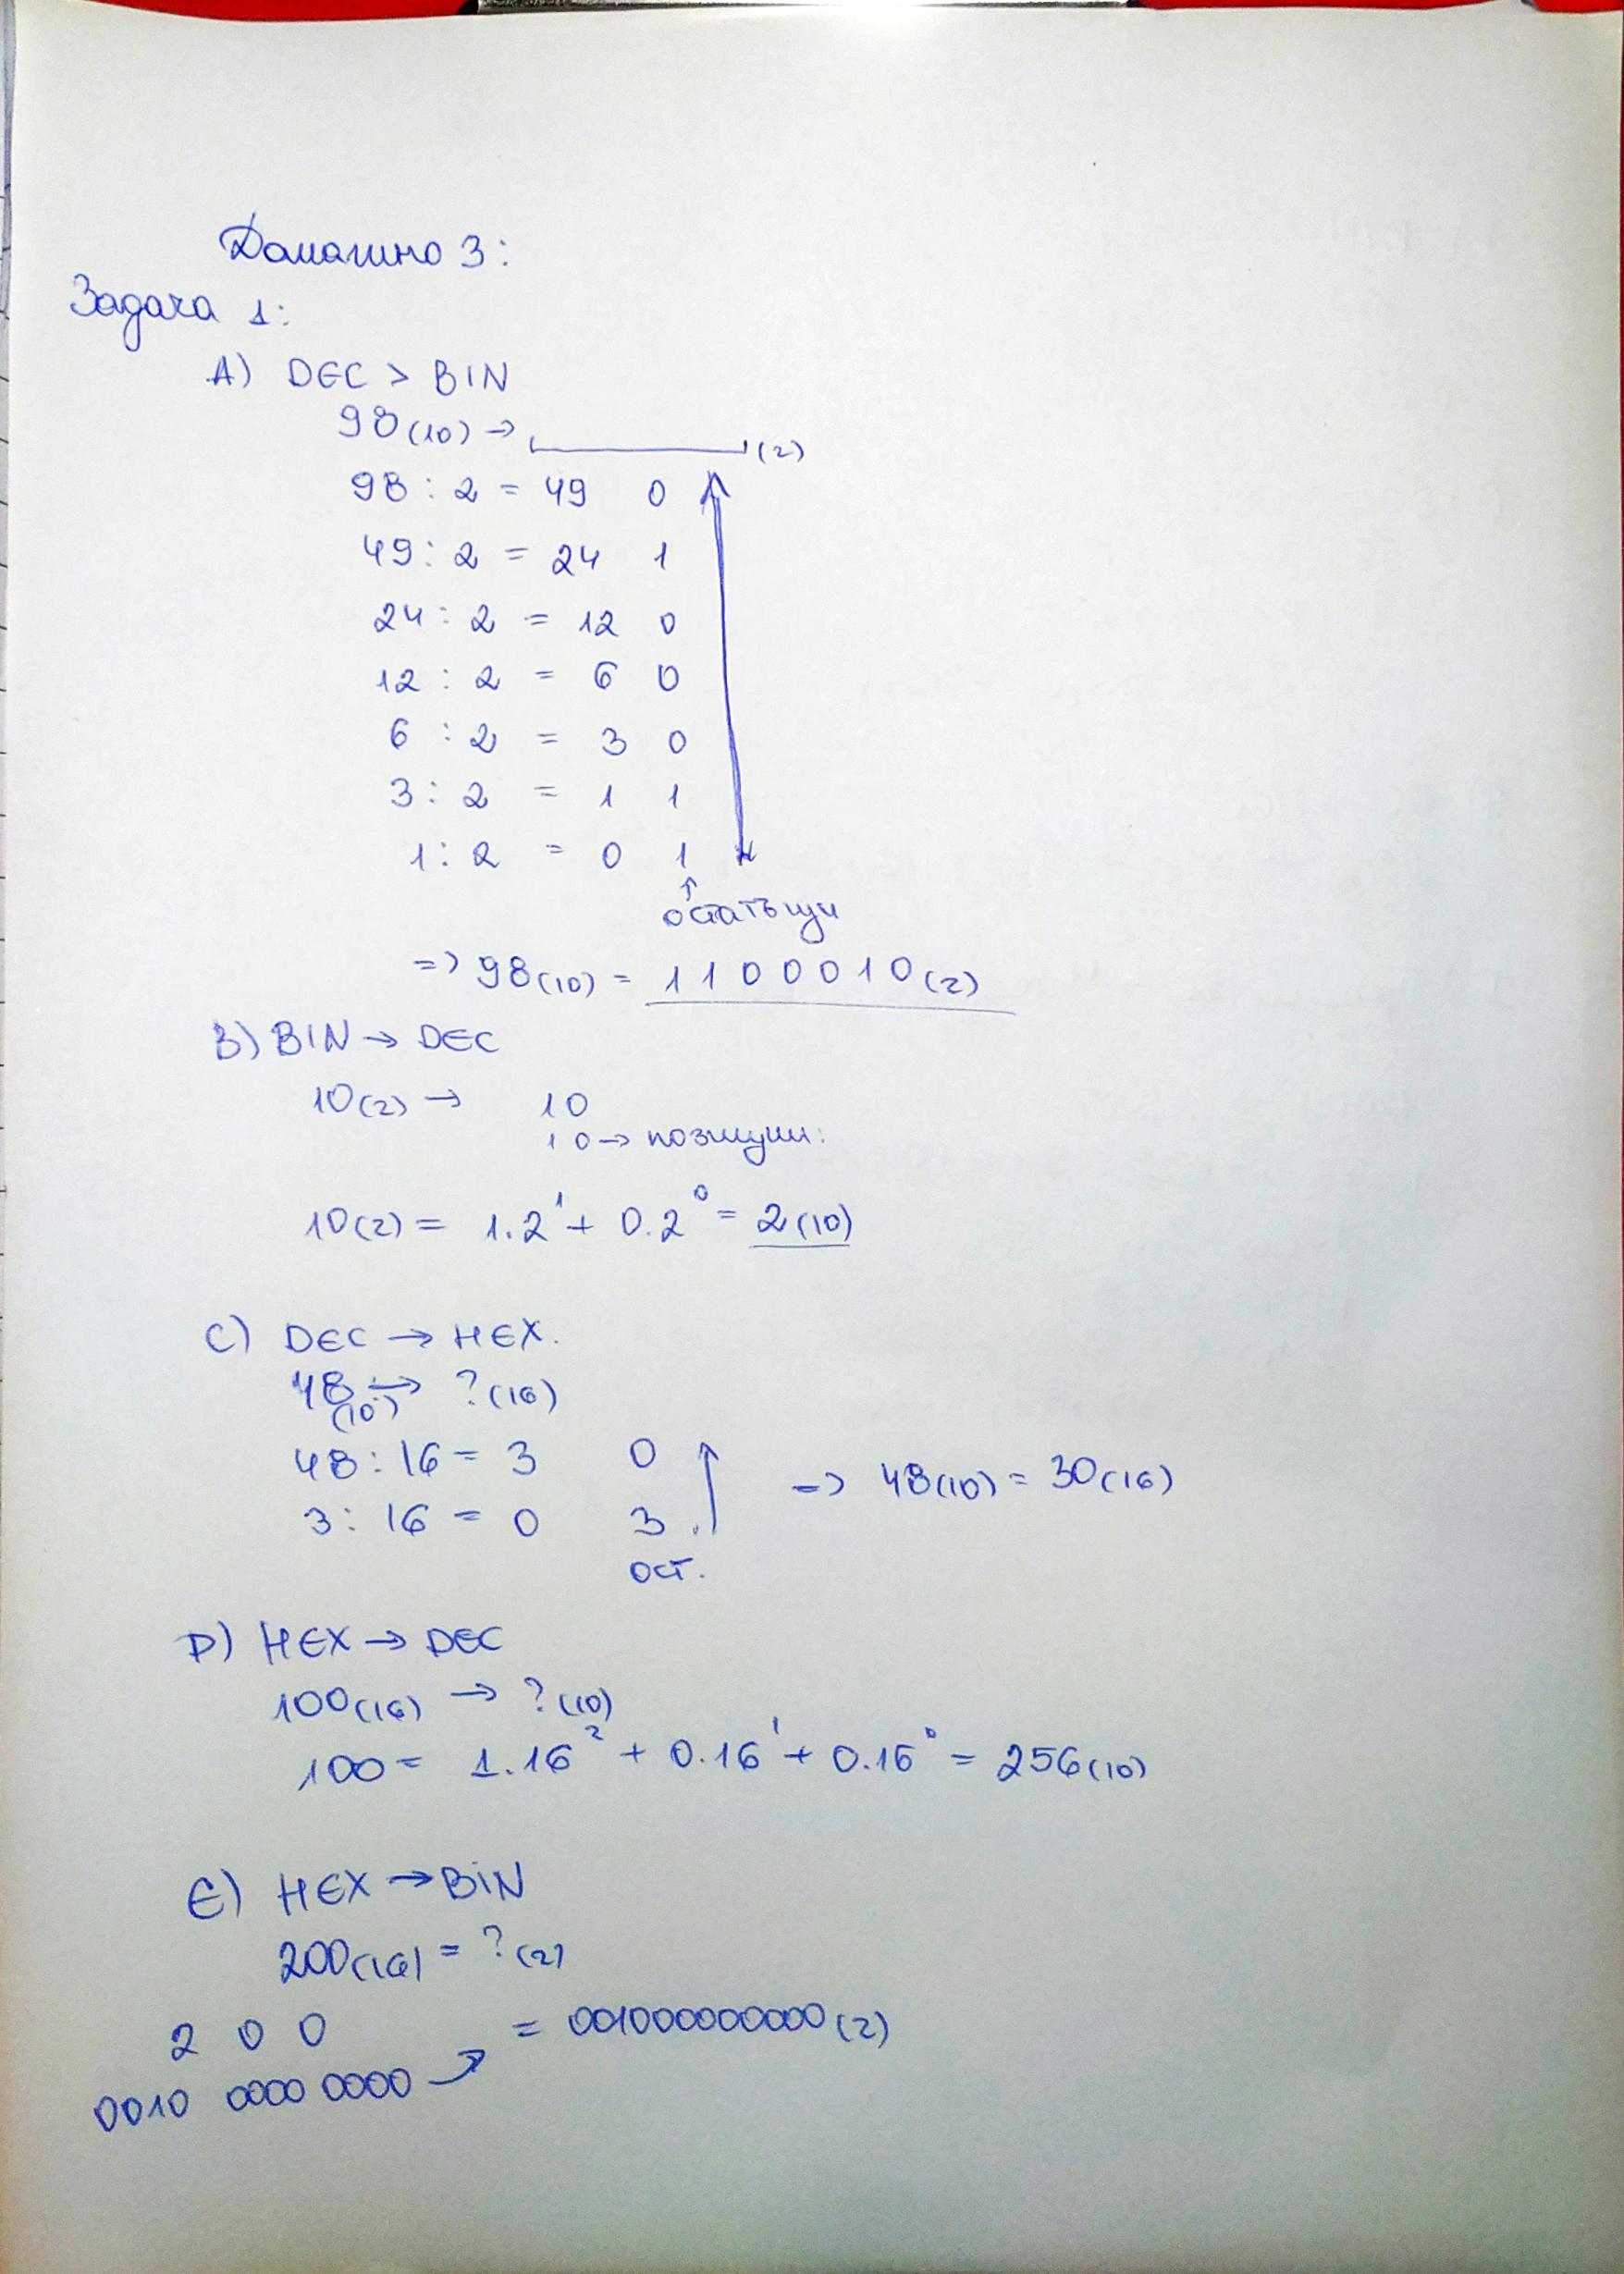 Домашно 3:
Задача 1:
A) DEC > BIN
98(10) → (2)
98 : 2 = 49 0
49 : 2 = 24 1
24 : 2 = 12 0
12 : 2 = 6 0
6 : 2 = 3 0
3 : 2 = 1 1
1 : 2 = 0 1
↑
остатъци
=> 98(10) = 1100010(2)
B) BIN → DEC
10(2) → 10
1 0 → позиции:
10(2) = 1.2¹ + 0.2⁰ = 2(10)
C) DEC → HEX.
48(10) → ?(16)
48 : 16 = 3 0
3 : 16 = 0 3
=> 48(10) = 30(16)
ост.
D) HEX → DEC
100(16) → ?(10)
100 = 1.16² + 0.16¹ + 0.16⁰ = 256(10)
E) HEX → BIN
200(16) = ?(2)
2 0 0 = 001000000000(2)
0010 0000 0000